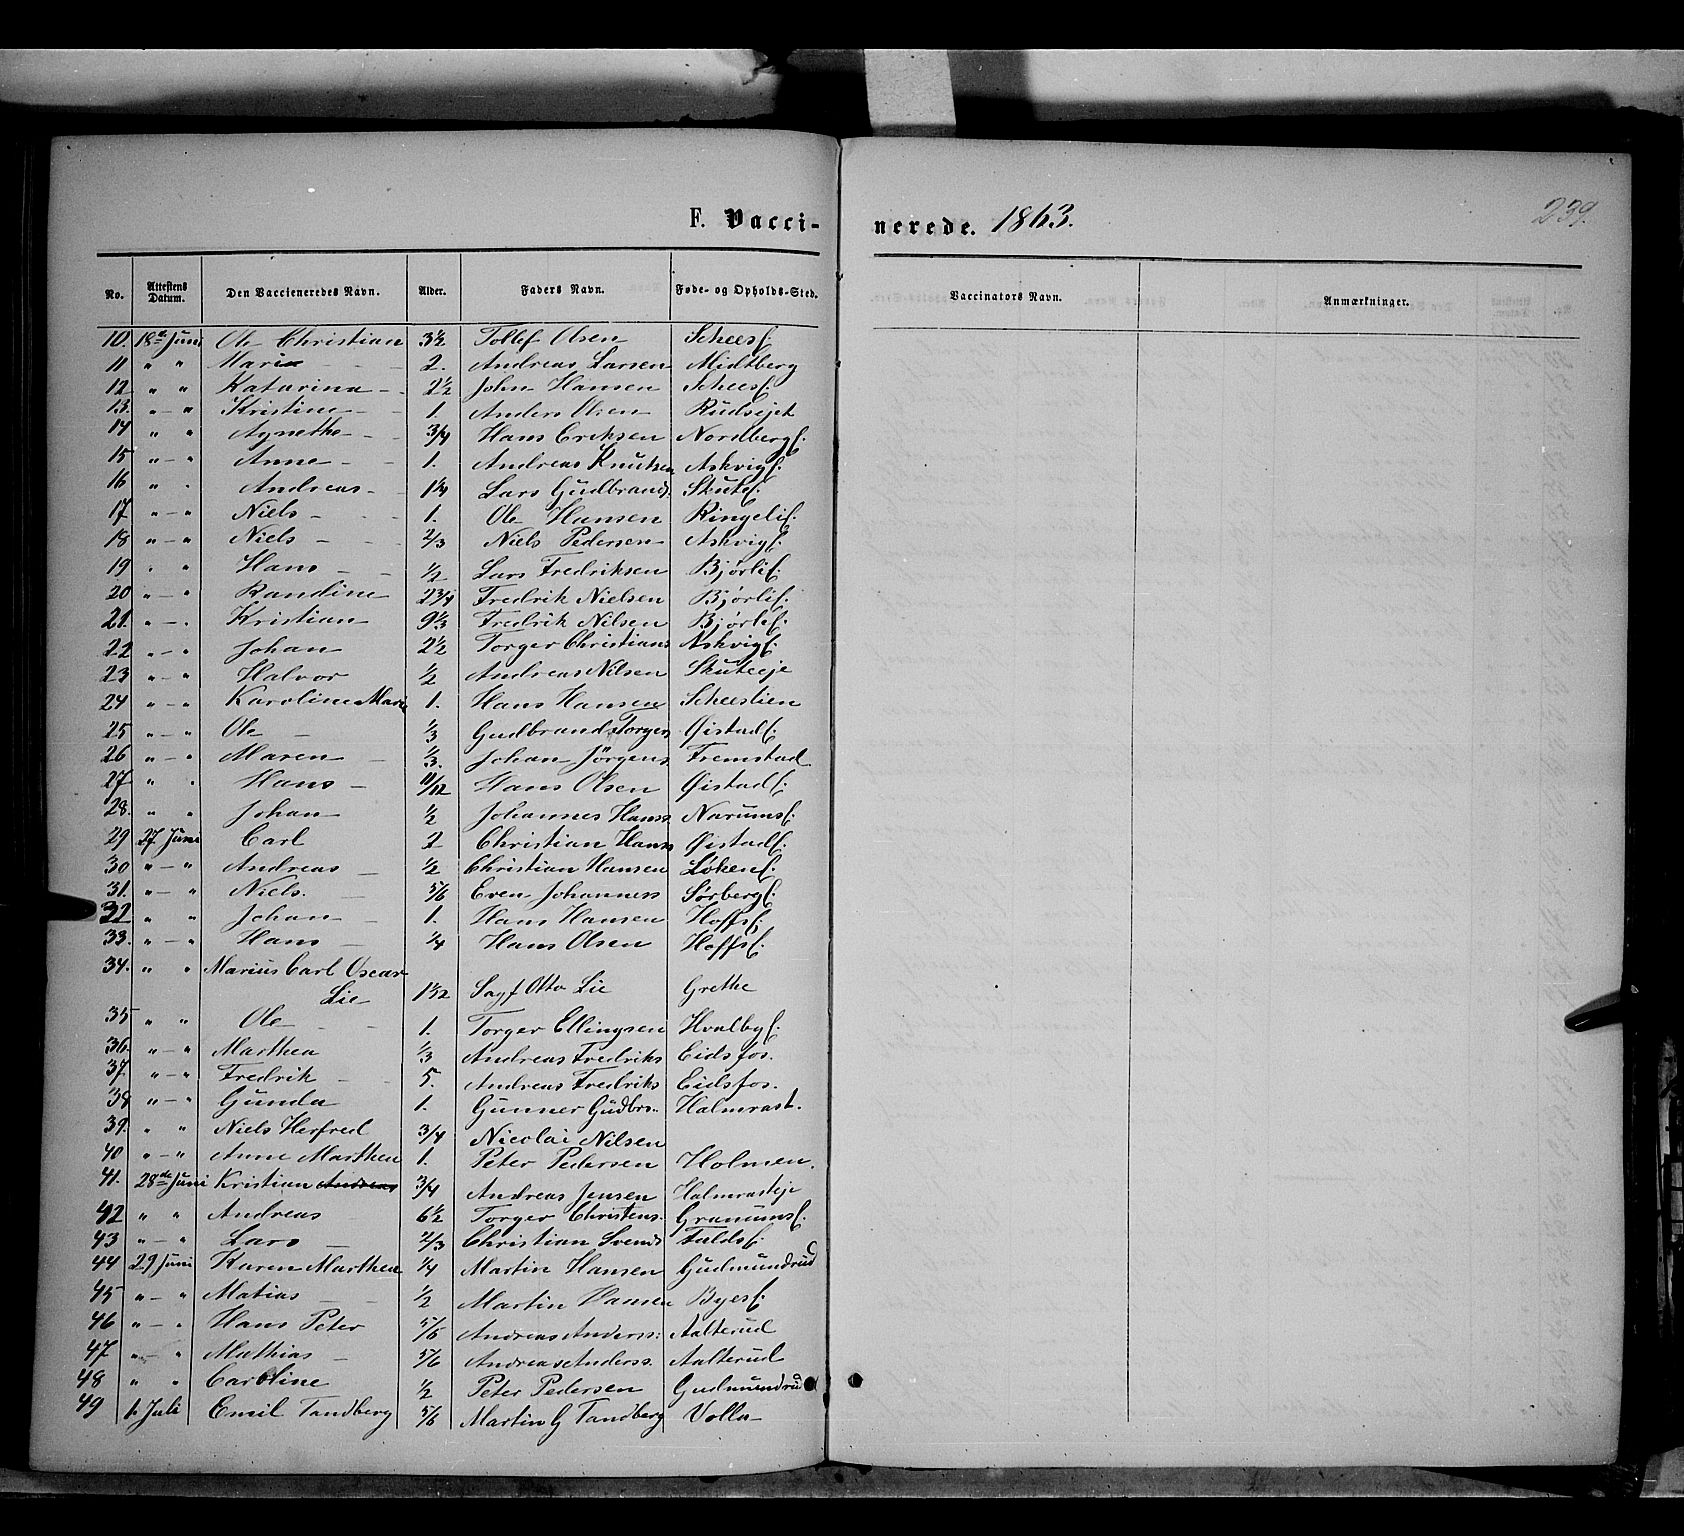 F. Vacci-
nerede. 1863.
239.
No. Attestens Datum. Den Vaccieneredes Navn. Alder. Faders Navn. Føde- og Opholds-Sted. Vaccinators Navn. Anmærkninger.
10. 18de Juni Ole Christian 3½ Tollef Olsen Scheesf.
11 " " Marie - - 2. Andreas Larsen Midtberg
12 " " Katarina - 2½ John Hansen Scheesf.
13. " - " Kristine - 1. Anders Olsen Rudsejet
14 " " Agnethe - 3/4 Hans Eriksen Nordbergf.
15 " - " Anne - - 1. Andreas Knutsen Askvigf.
16 " . Andreas - - 1¼ Lars Gudbrands. Skutef.
17. " - " Niels - - 1. Ole Hansen Ringelif.
18 " - " Niels - - 2/3 Niels Pedersen Askvigf.
19 " " Hans - - ½ Lars Fredriksen Bjørlif.
20 " - " Randine 2 3/4 Fredrik Nielsen Bjørlif.
21. " - . Kristian - 9⅓ Fredrik Nilsen Bjørlef.
22 " - " Johan 2½ Torger Christians Askvigf.
23 " - " Halvor ½ Andreas Nilsen Skuteeje
24 " - " Karoline Marie 1. Hans Hansen Scheestien
25 " - " Ole - ⅓ Gudbrand Torgers Øistadf.
26 " - " Maren - - ⅓. Johan Jörgens Fremstad
27 " . Hans - 11/12 Hans Olsen Øistadf.
28. " " Johan ½ Johannes Hanss Narumsf.
29 27 Juni Carl 2 Christian Hanss Øistadf.
30 " - " Andreas - ½ Christian Hansen Løkenf.
31. " - " Niels. 5/6 Even Johanness Sørbergf.
32 " " Johan - 1. Hans Hansen Hoffsf.
33. " - " Hans - ¼ Hans Olsen Hoffsf.
34. " " Marius Carl Oscar
Lie 1 1/12 Sagf Otto Lie Grethe
35 " " Ole - - 1. Torger Ellingsen Hvalbyf.
36. " - " Marthea ⅓ Andreas Fredriks Eidsfos.
37. " - " Fredrik - 5. Andreas Fredriks Eidsfos.
38 " - " Gunda 1. Gunner Gudbrs.. Halmrast.
39. " " Niels Herfred 3/4 Nicolai Nilsen
40 " - " Anne Marthea 1. Peter Pedersen Holmen.
41. 28de Juni Kristian Andreas 3/4 Andreas Jensen Halmrasteje
42 " " Andreas 6½ Torger Christens. Granumsf.
43 " - " Lars - 2/3 Christian Svends Faldsf.
44 29 Juni Karen Marthea ¼ Martin Hansen Gudmundrud
45 " - " Matias - - ½ Martin Hansen Byesf.
46 " - . Hans Peter 5/6 Andreas Anderss: Aalterud
47 " - " Mathias - 5/6 Andreas Anderss. Aalterud
48 " " Caroline ½ Peter Pedersen Gudmundrud
49 1. Juli Emil Tandberg 5/6 Martin G Tandberg Volla